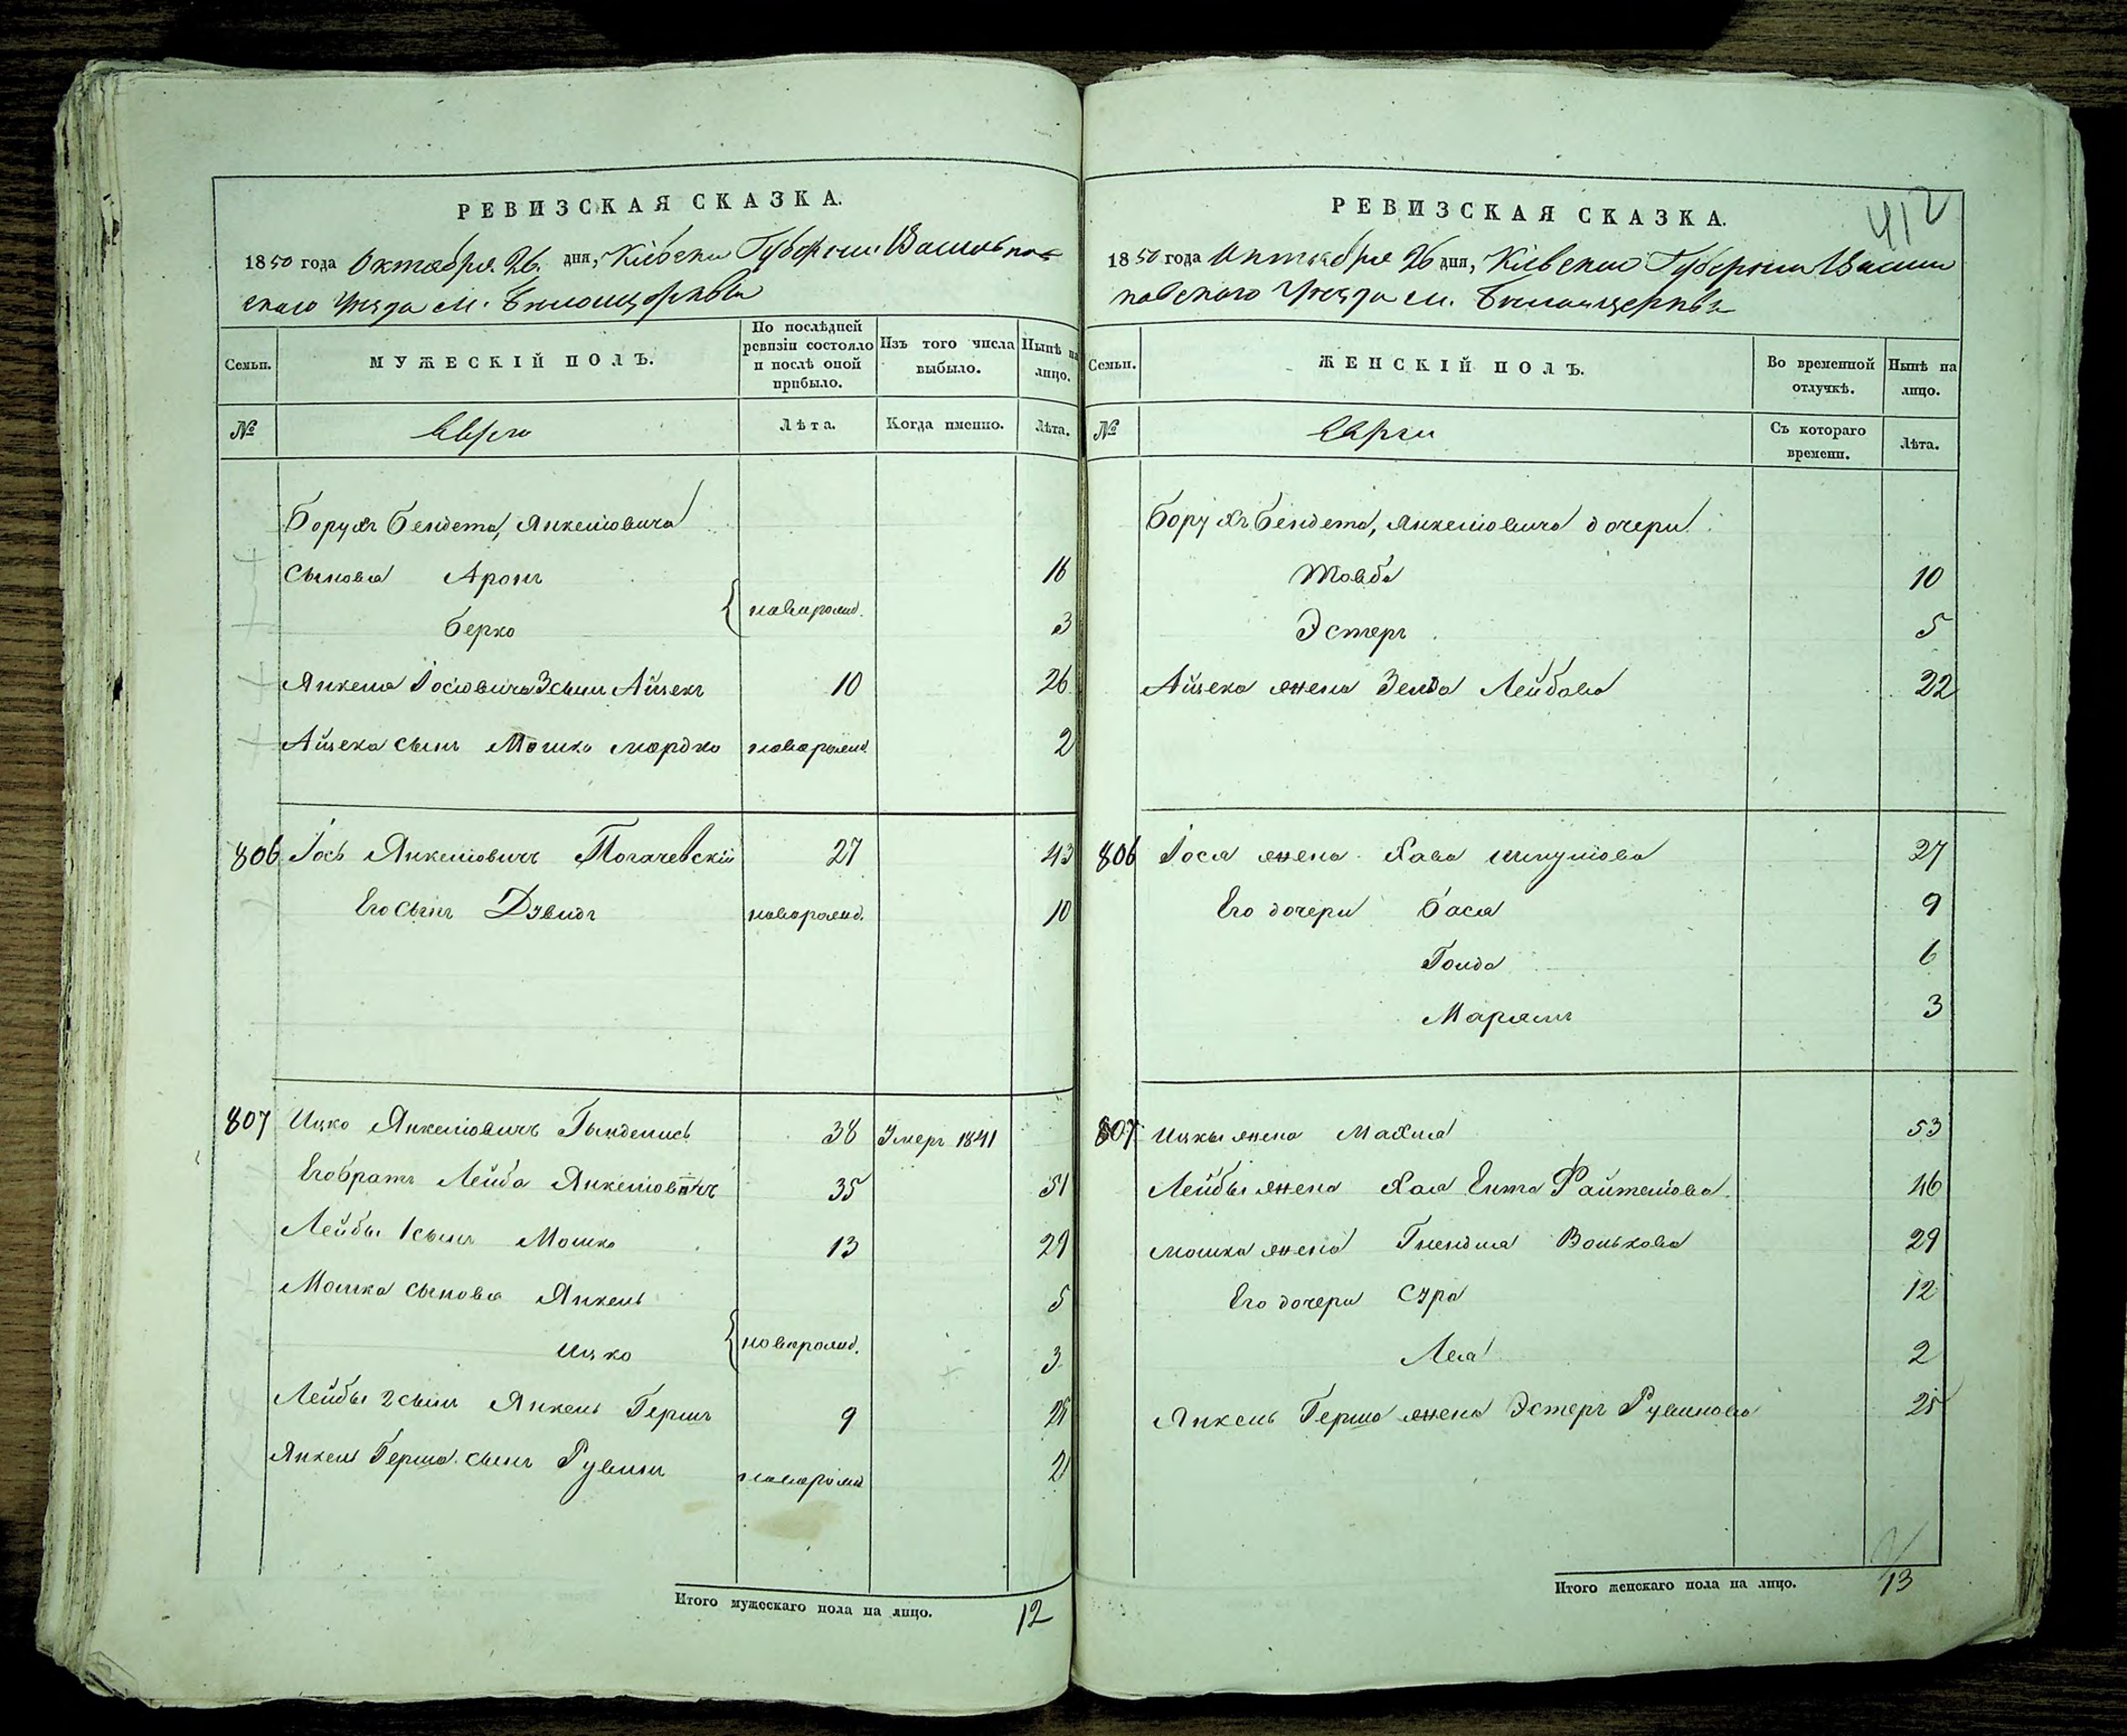 РЕВИЗСКАЯ СКАЗКА.
1850 года Октября 26. дня, Кіевской Губерніи Васильков
скаго Уѣзда м. Бѣлоцерквы
Семьи.
МУЖЕСКІЙ ПОЛЪ.
По послѣдней ревизіи состояло и послѣ оной прибыло.
Изъ того числа выбыло.
Нынѣ на лицо.
№
Евреи
Лѣта.
Когда именно.
Лѣта.
Борухъ Бендета, Янкелiовича
Сыновья Аронъ 16
новорожд.
Берко 3
Янкеля Іосiовича 3 сынъ Айзекъ 10 26
Айзека сынъ Мошко Мордко новорожд 2
806 Іось Янкелiовичъ Погачевскій 27 43
Его сынъ Дувидъ новорожд. 10
807 Ицко Янкелiовичъ Гындепись 38 Умеръ 1841
Его братъ Лейба Янкелiовичъ 35 51
Лейбы 1 сынъ Мошко 13 29
Мошка сыновья Янкель 5
новорожд.
Ицко 3
Лейбы 2 сынъ Янкель Гершъ 9 25
Янкель Герша сынъ Рувинъ новорожд 2
Итого мужескаго пола на лицо. 12
412
РЕВИЗСКАЯ СКАЗКА.
1850 года Октября 26 дня, Кіевской Губерніи Василь
ковскаго Уѣзда м. Бѣлоцерквы
Семьи.
ЖЕНСКІЙ ПОЛЪ.
Во временной отлучкѣ.
Нынѣ на лицо.
№
Евреи
Съ котораго времени.
Лѣта.
Борухъ Бендета, Янкелiовича дочери
Товба 10
Эстеръ 5
Айзека жена Зельда Лейбова 22
806 Іося жена Хава Шмулiова 27
Его дочери Бася 9
Голда 6
Марьямъ 3
807 Ицкы жена Махля 53
Лейбы жена Хая Ента Файтелiова 46
Мошка жена Гнендля Волькова 29
Его дочери Сура 12
Лея 2
Янкель Герша жена Эстеръ Рувинова 25
Итого женскаго пола на лицо. 13